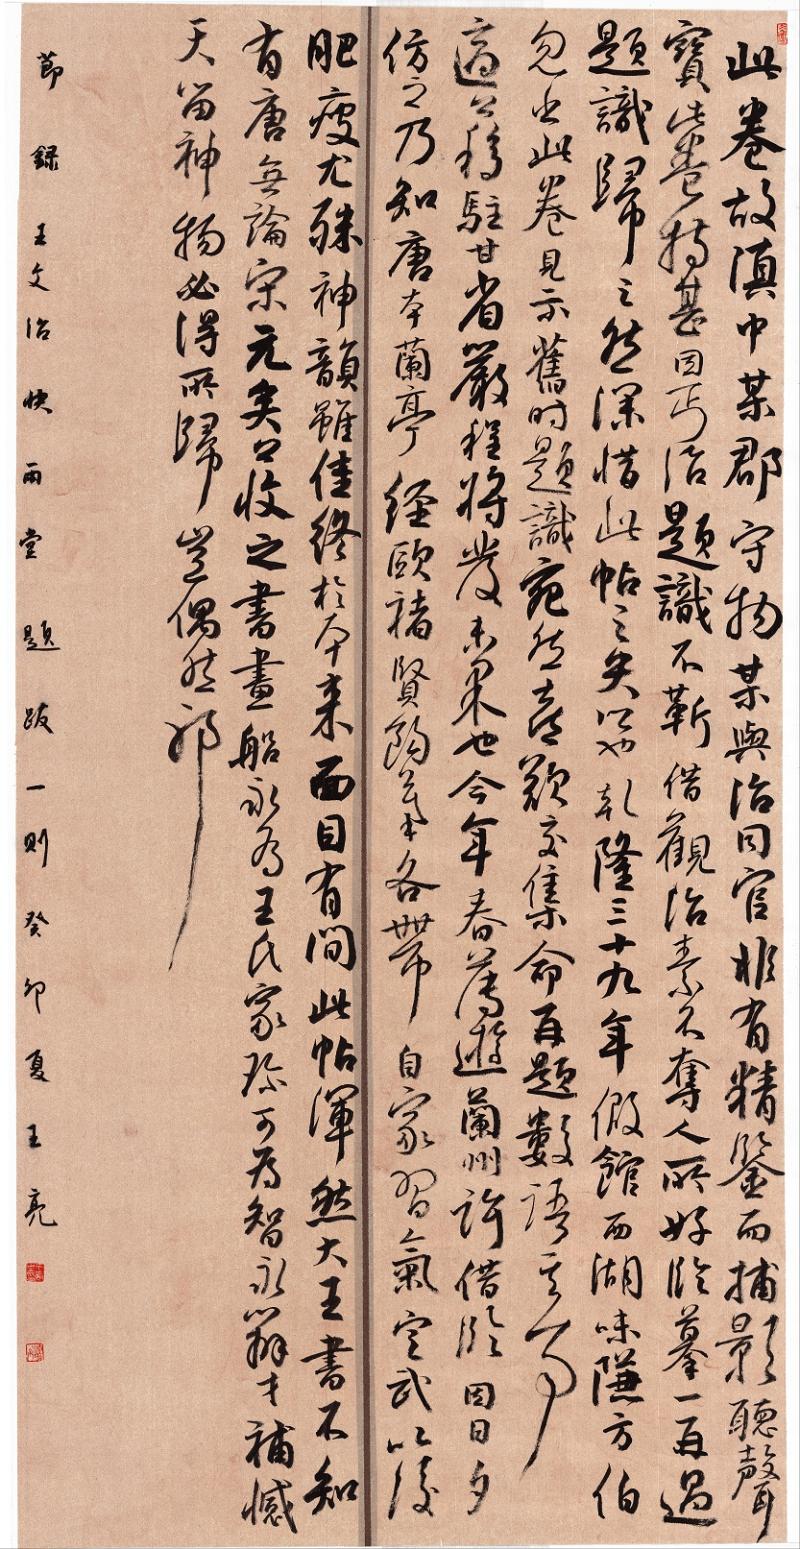 此卷故滇中某郡守物某與治同官非有精鑒而捕影聽聲
寶此卷特甚因丐治題識不靳借觀治素不奪人所好臨摹一再過
題識歸之然深惜此帖之失所也乾隆三十九年假館西湖味隒方伯
忽出此卷見示舊時題識宛然喜歎交集命再題數語其旁
適公移駐甘省嚴程將發未果也今年春薄遊蘭州許借臨因日夕
仿之乃知唐本蘭亭經歐褚賢鉤摹各帶自家習氣定武以後
肥瘦尤殊神韻雖佳終於本來面目有間此帖渾然大王書不知
有唐無論宋元矣公收之書畫船永為王氏家珍可為智永辯才補憾
天留神物必得所歸豈偶然耶
節錄王文治快雨堂題跋一則癸卯夏王亮